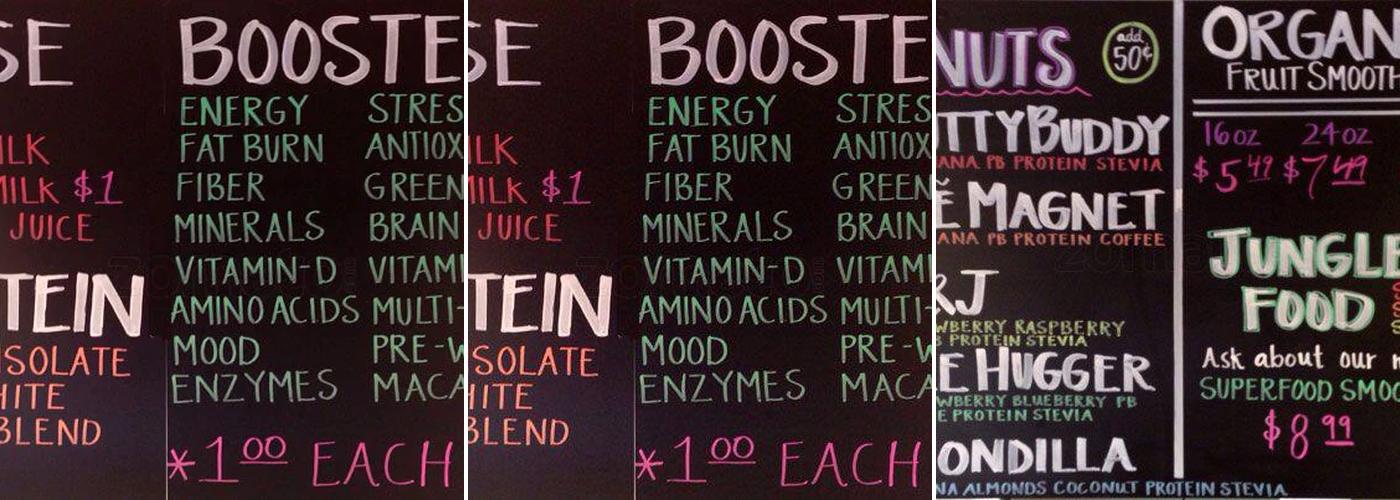 SE
ILK
MILK $1
JUICE
TEIN
SOLATE
HITE
BLEND
BOOSTE
ENERGY STRES
FAT BURN ANTIOX
FIBER GREEN
MINERALS BRAIN
VITAMIN-D VITAM
AMINO ACIDS MULTI-
MOOD PRE-W
ENZYMES MACA
*1.00 EACH
SE
ILK
MILK $1
JUICE
TEIN
SOLATE
HITE
BLEND
BOOSTE
ENERGY STRES
FAT BURN ANTIOX
FIBER GREEN
MINERALS BRAIN
VITAMIN-D VITAM
AMINO ACIDS MULTI-
MOOD PRE-W
ENZYMES MACA
*1.00 EACH
NUTS add 50¢
TTYBUDDY
ANA PB PROTEIN STEVIA
E MAGNET
ANA PB PROTEIN COFFEE
RJ
WBERRY RASPBERRY
B PROTEIN STEVIA
E HUGGER
WBERRY BLUEBERRY PB
E PROTEIN STEVIA
ONDILLA
NA ALMONDS COCONUT PROTEIN STEVIA
ORGAN
FRUIT SMOOTH
16oz 24oz
$5.49 $7.49
JUNGLE
FOOD
Ask about our
SUPERFOOD SMO
$8.99